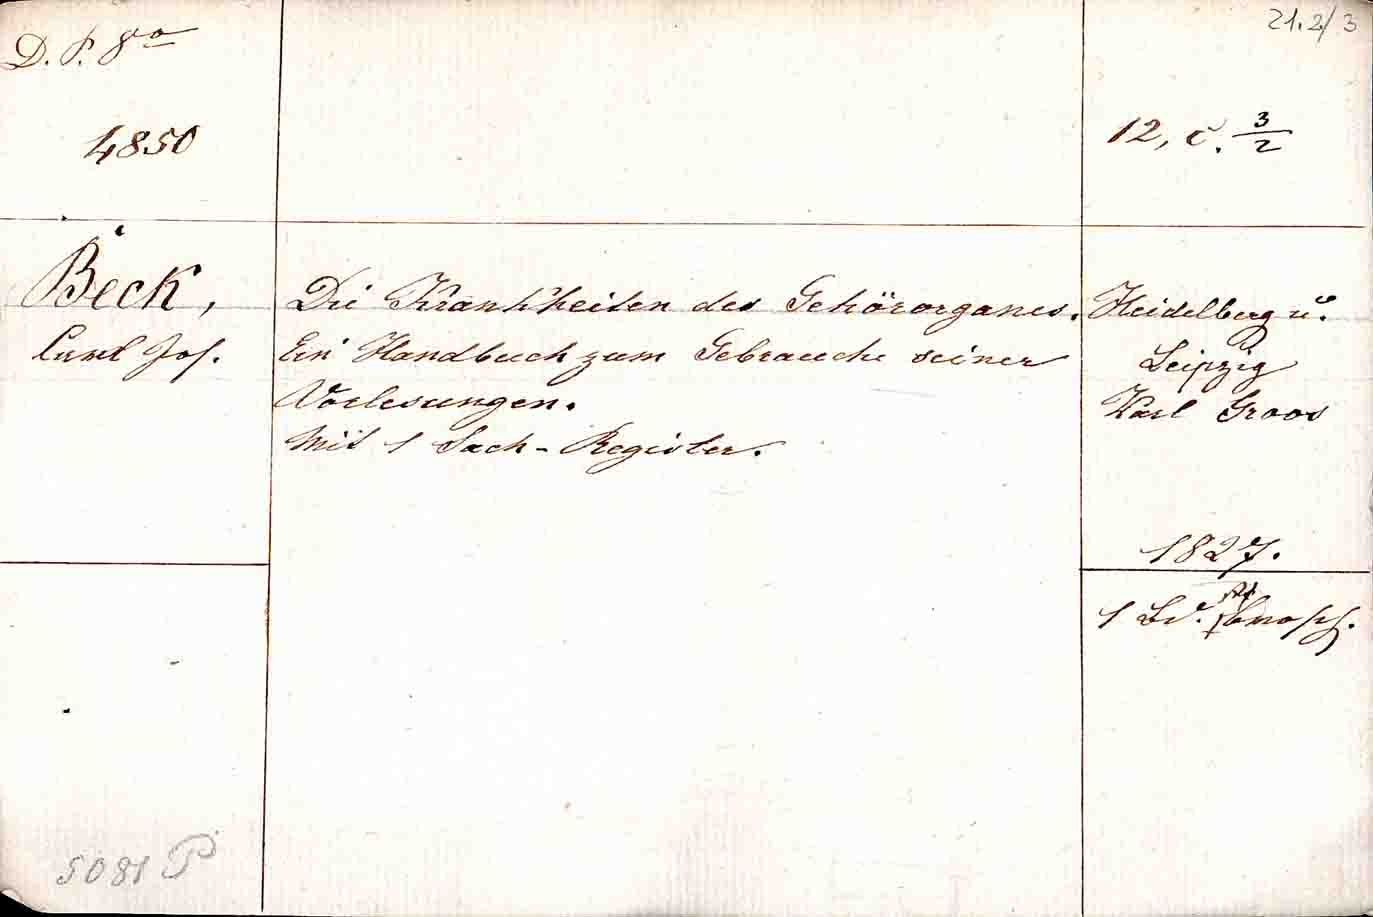 21.2/3
D. P. 8o
4850
12, c. 3/2
Beck,
Carl Jos.
Die Krankheiten des Gehörorganes.
Ein Handbuch zum Gebrauche seiner
Vorlesungen.
Mit 1 Sach-Register.
Heidelberg u.
Leipzig
Karl Groos
1827.
1 Bd. brosch.
5081 P